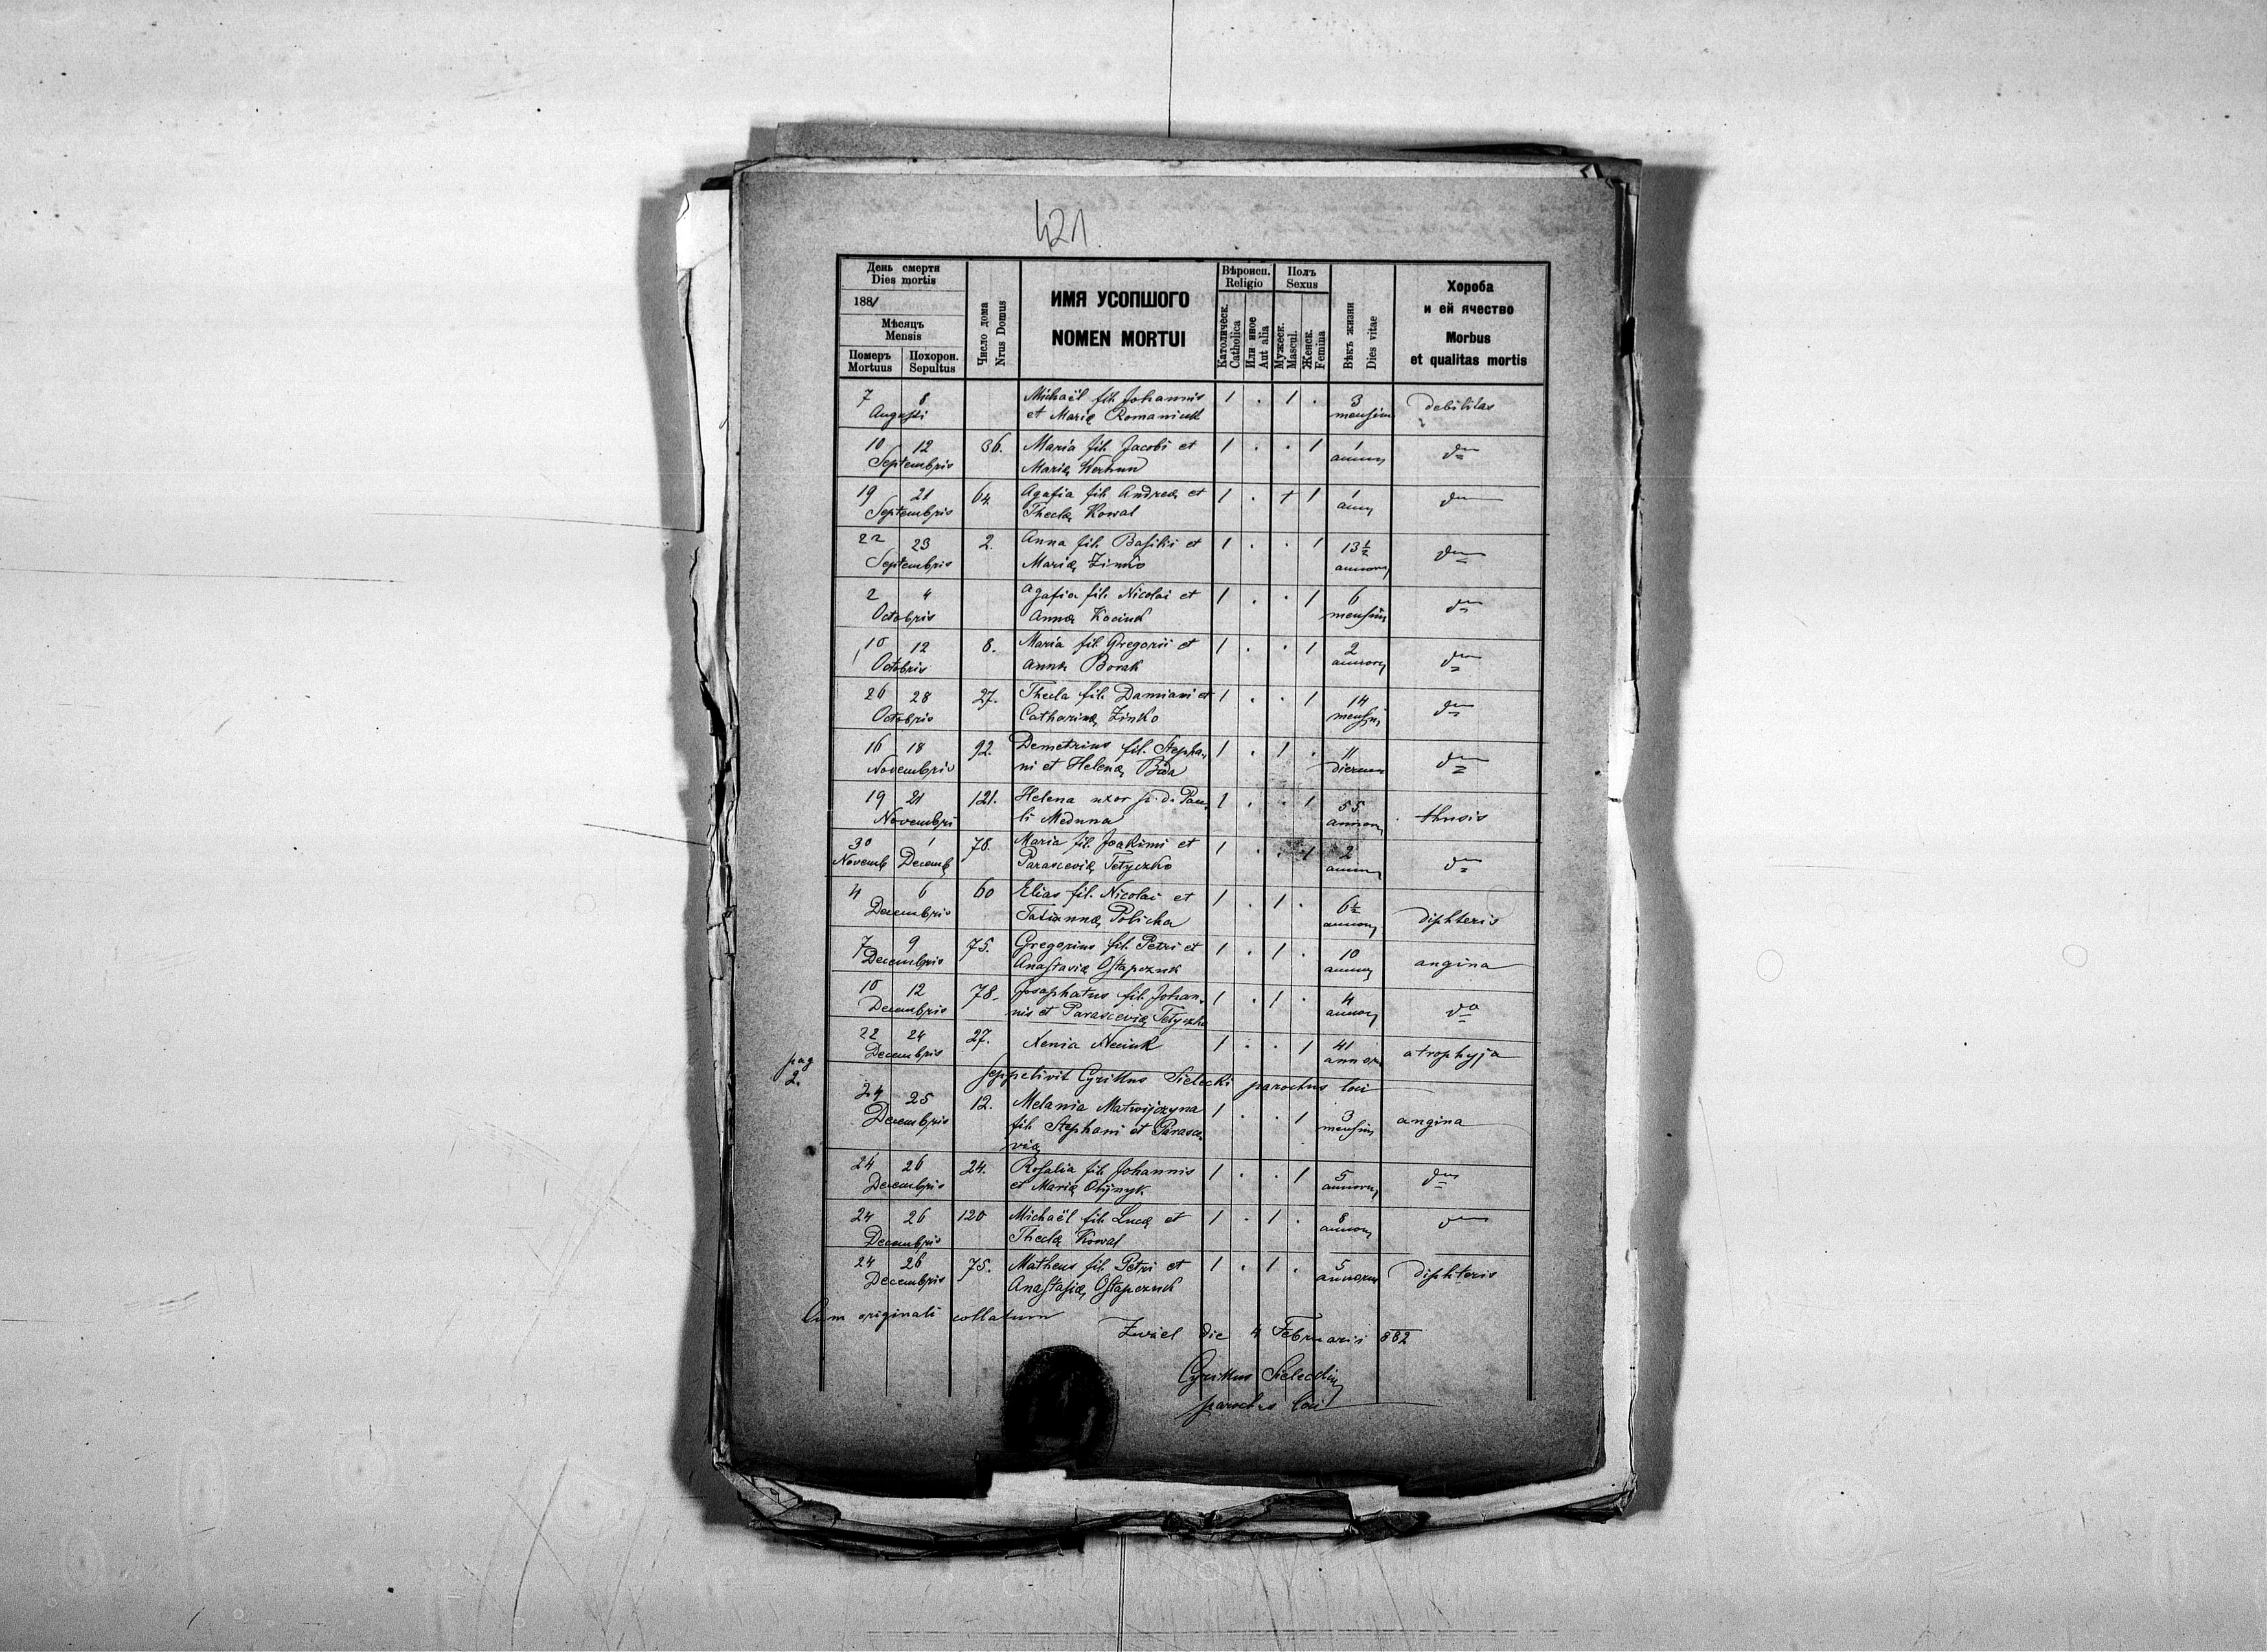 421.
День смерти
Dies mortis
1881
Мѣсяцъ
Mensis
Померъ Похорон.
Mortuus Sepultus
Число дома
Nrus Domus
ИМЯ УСОПШОГО
NOMEN MORTUI
Вѣроисп.
Religio
Католическ.
Catholica
Или иное
Aut alia
Полъ
Sexus
Мужеск.
Mascul.
Женск.
Femina
Вѣкъ жизни
Dies vitae
Хороба
и ей ячество
Morbus
et qualitas mortis
7 8 Michaël fil. Johannis 1 . 1 . 3 debilitas
Augusti et Mariæ Romaniuk mensium
10 12 36. Maria fil. Jacobi et 1 . . 1 1 dto
Septembris Mariæ Werhun
19 21 64 Agafia fil. Andreæ et 1 . 1 1 dto
Septembris Theclæ Kowal
22 23 2. Anna fil. Basilii et 1 . . 1 13½ dto
Septembris Mariæ Zinko annorum
2 4 Agafia fil. Nicolai et 1 . . 1 6 dto
Octobris Annæ Kociuk mensium
10 12 8. Maria fil. Gregorii et 1 . . 1 2 dto
Octobris Annæ Borak annorum
26 28 27. Thecla fil. Damiani et 1 . . 1 14 dto
Octobris Catharinæ Zinko mensium
16 18 92. Demetrius fil. Stepha- 1 . 1 . 11 dto
Novembris ni et Helenæ Bida dierum
19 21 121. Helena uxor p. d. Pau- 1 . . 1 55 thusis
Novembri li Meduna annorum
30 1 78. Maria fil. Joakimi et 1 . . 1 2 dto
Novemb Decemb Parasceviæ Tetyczko
4 6 60 Elias fil. Nicolai et 1 . 1 . 6½ diphteris
Decembris Tatiannæ Policha annorum
7 9 75. Gregorius fil. Petri et 1 . 1 . 10 angina
Decembris Anastasiæ Ostapczuk
10 12 78. Josaphatus fil. Johan- 1 . 1 . 4 dto
Decembris nis et Parasceviæ Tetyczko annorum
22 24 27. Xenia Neciuk 1 . . 1 41 atrophyja
Decembris annorum
pag
2.
seppelivit Cyrillus Sielecki parochus loci
24 25 12. Melania Matwijczyna 1 . . 1 3 angina
Decembris fil. Stephani et Parasce- mensium
viæ
24 26 24. Rosalia fil. Johannis 1 . . 1 5 dto
Decembris et Mariæ Olijnyk annorum
24 26 120 Michaël fil. Lucæ et 1 . 1 . 8 dto
Decembris Theclæ Kowal annorum
24 26 75. Matheus fil. Petri et 1 . 1 . 5 diphteris
Decembris Anastasiæ Ostapczuk annorum
Cum originali collatum
die 4 Februarii 882
Cyrillus Sielecki
parochus loci